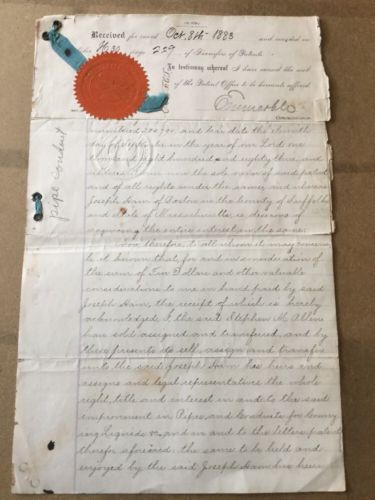 Received for record Oct. 8th 1883 and recorded in
page 229 of Transfers of Patents.
In testimony whereof I have caused the seal
of the Patent Office to be hereunto affixed
Commissioner.
pipe conduit
numbered and bearing date the
day of in the year of our Lord one
thousand eight hundred and eighty three, and
whereas I am now the sole owner of said patent
and of all rights under the same; and whereas
Joseph Ham of Boston in the County of Suffolk
and State of Massachusetts is desirous of
acquiring the entire interest in the same.
Now therefore, to all whom it may concern
be it known that, for and in consideration of
the sum of Ten Dollars and other valuable
considerations to me in hand paid by said
Joseph Ham, the receipt of which is hereby
acknowledged, I the said Stephen M. Allen
have sold assigned and transferred, and by
these presents do sell, assign and transfer
unto the said Joseph Ham his heirs and
assigns and legal representatives the whole
right, title and interest in and to the said
improvement in Pipes, and Conduits for Convey
ing Liquids &c, and in and to the letters patent
therefor aforesaid: the same to be held and
enjoyed by the said Joseph Ham his heirs